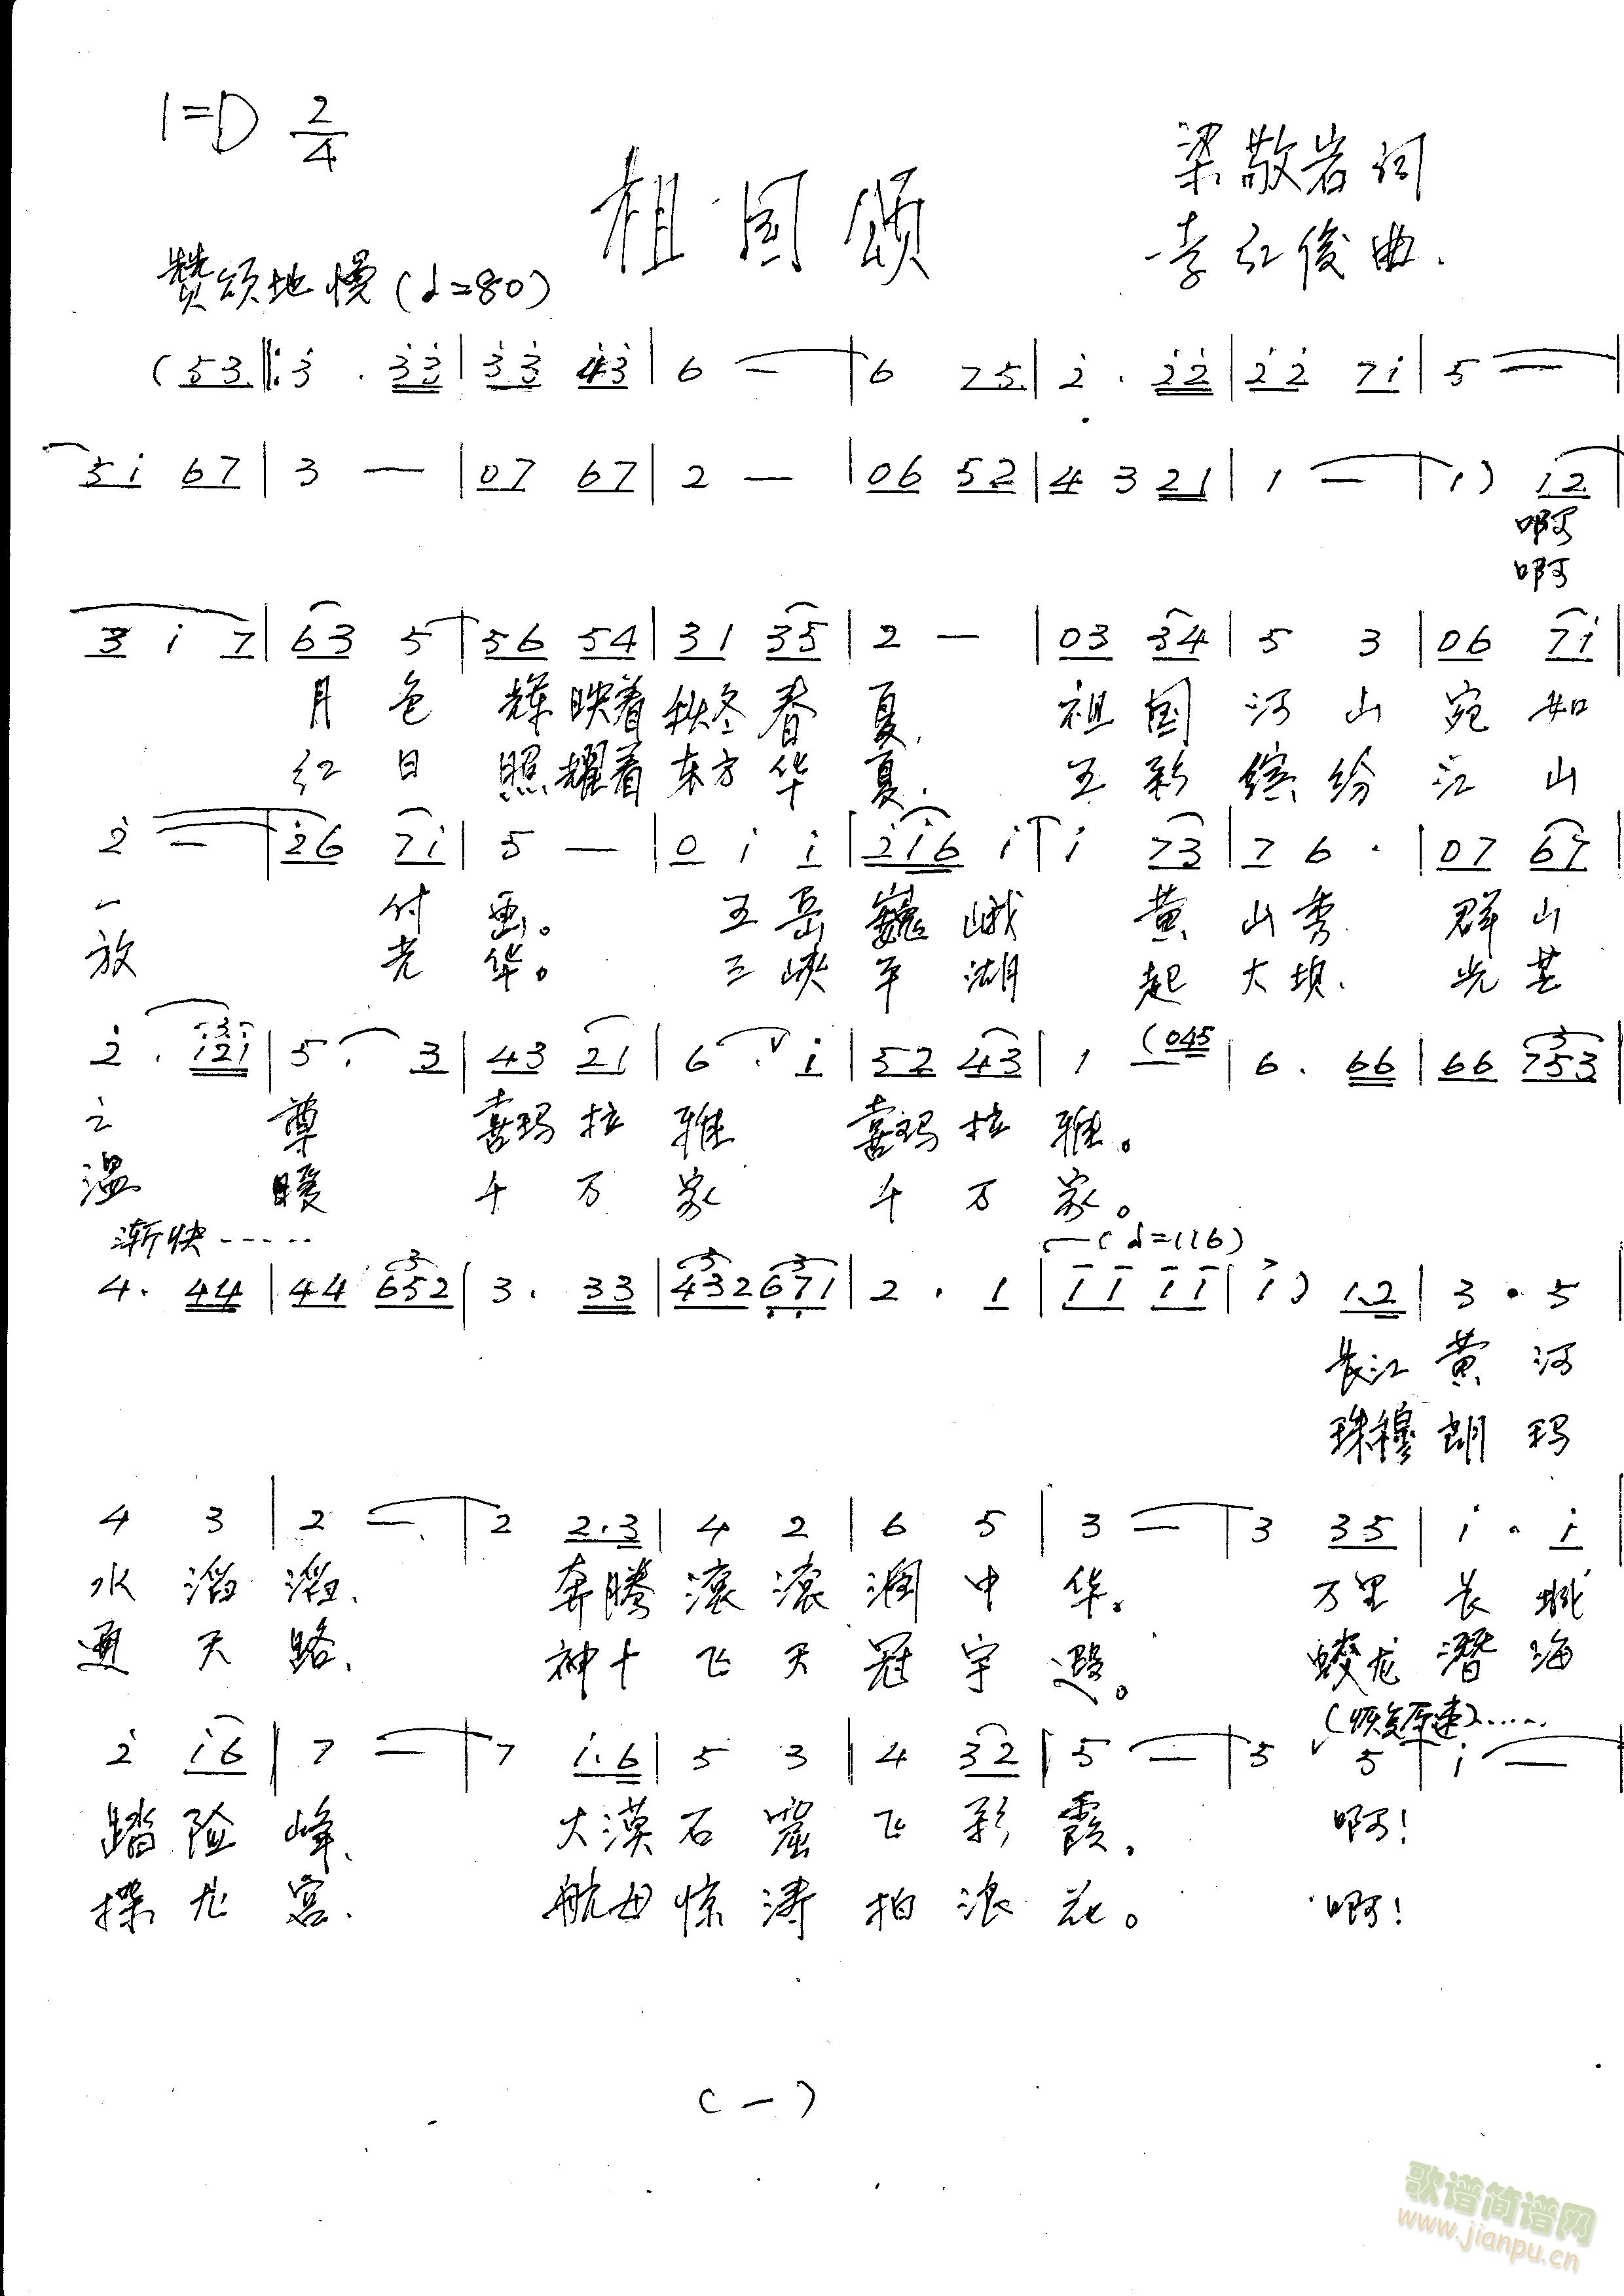 1=D 2/4
祖国颂
梁敬岩词
李红俊曲.
赞颂地慢(♩=80)
(53‖:3̇ . 3̇3̇|3̇3̇ 4̇3̇|6 —|6 75|2̇ . 2̇2̇|2̇2̇ 71̇|5 —|
51̇ 67|3 —|07 67|2 —|06 52|4 3 21|1 —|1) 12|
啊
啊
3 1̇ 7|63 5|56 54|31 35|2 —|03 34|5 3|06 71̇|
月色 辉映着秋冬春夏, 祖国河山宛如
红日 照耀着东方华夏. 五彩缤纷江山
2̇ —|2̇6 71̇|5 —|0 1̇ 1̇|2̇1̇6 1̇|1̇ 73|7 6 .|07 67|
一 付画。 五岳巍峨 黄山秀 群山
放 光华。 三峡平湖 起大坝. 光芒
2̇ . 1̇2̇1̇|5 . 3|43 21|6 . ∨ 1̇|52 43|1 (045|6 . 66|66 753|
之 尊 喜玛拉雅 喜玛拉雅。
温 暖 千万家 千万家。
渐快······
(♩=116)
4 . 44|44 652|3 . 33|432 671|2 . 1|1 1 1 1|1) 1.2|3 . 5|
长江黄河
珠穆朗玛
4 3|2 —|2 2.3|4 2|6 5|3 —|3 35|1̇ . 1̇|
水滔滔, 奔腾滚滚润中华。 万里长城
通天路, 神十飞天冠宇遐。 蛟龙潜海
(恢复原速)······
2̇ 1̇6|7 —|7 1̇.6|5 3|4 32|5 —|5 ∨ 5|1̇ —|
踏险峰, 大漠石窟飞彩霞. 啊!
探龙宫. 航母惊涛拍浪花。 啊!
(一)
歌谱简谱网
www.jianpu.cn